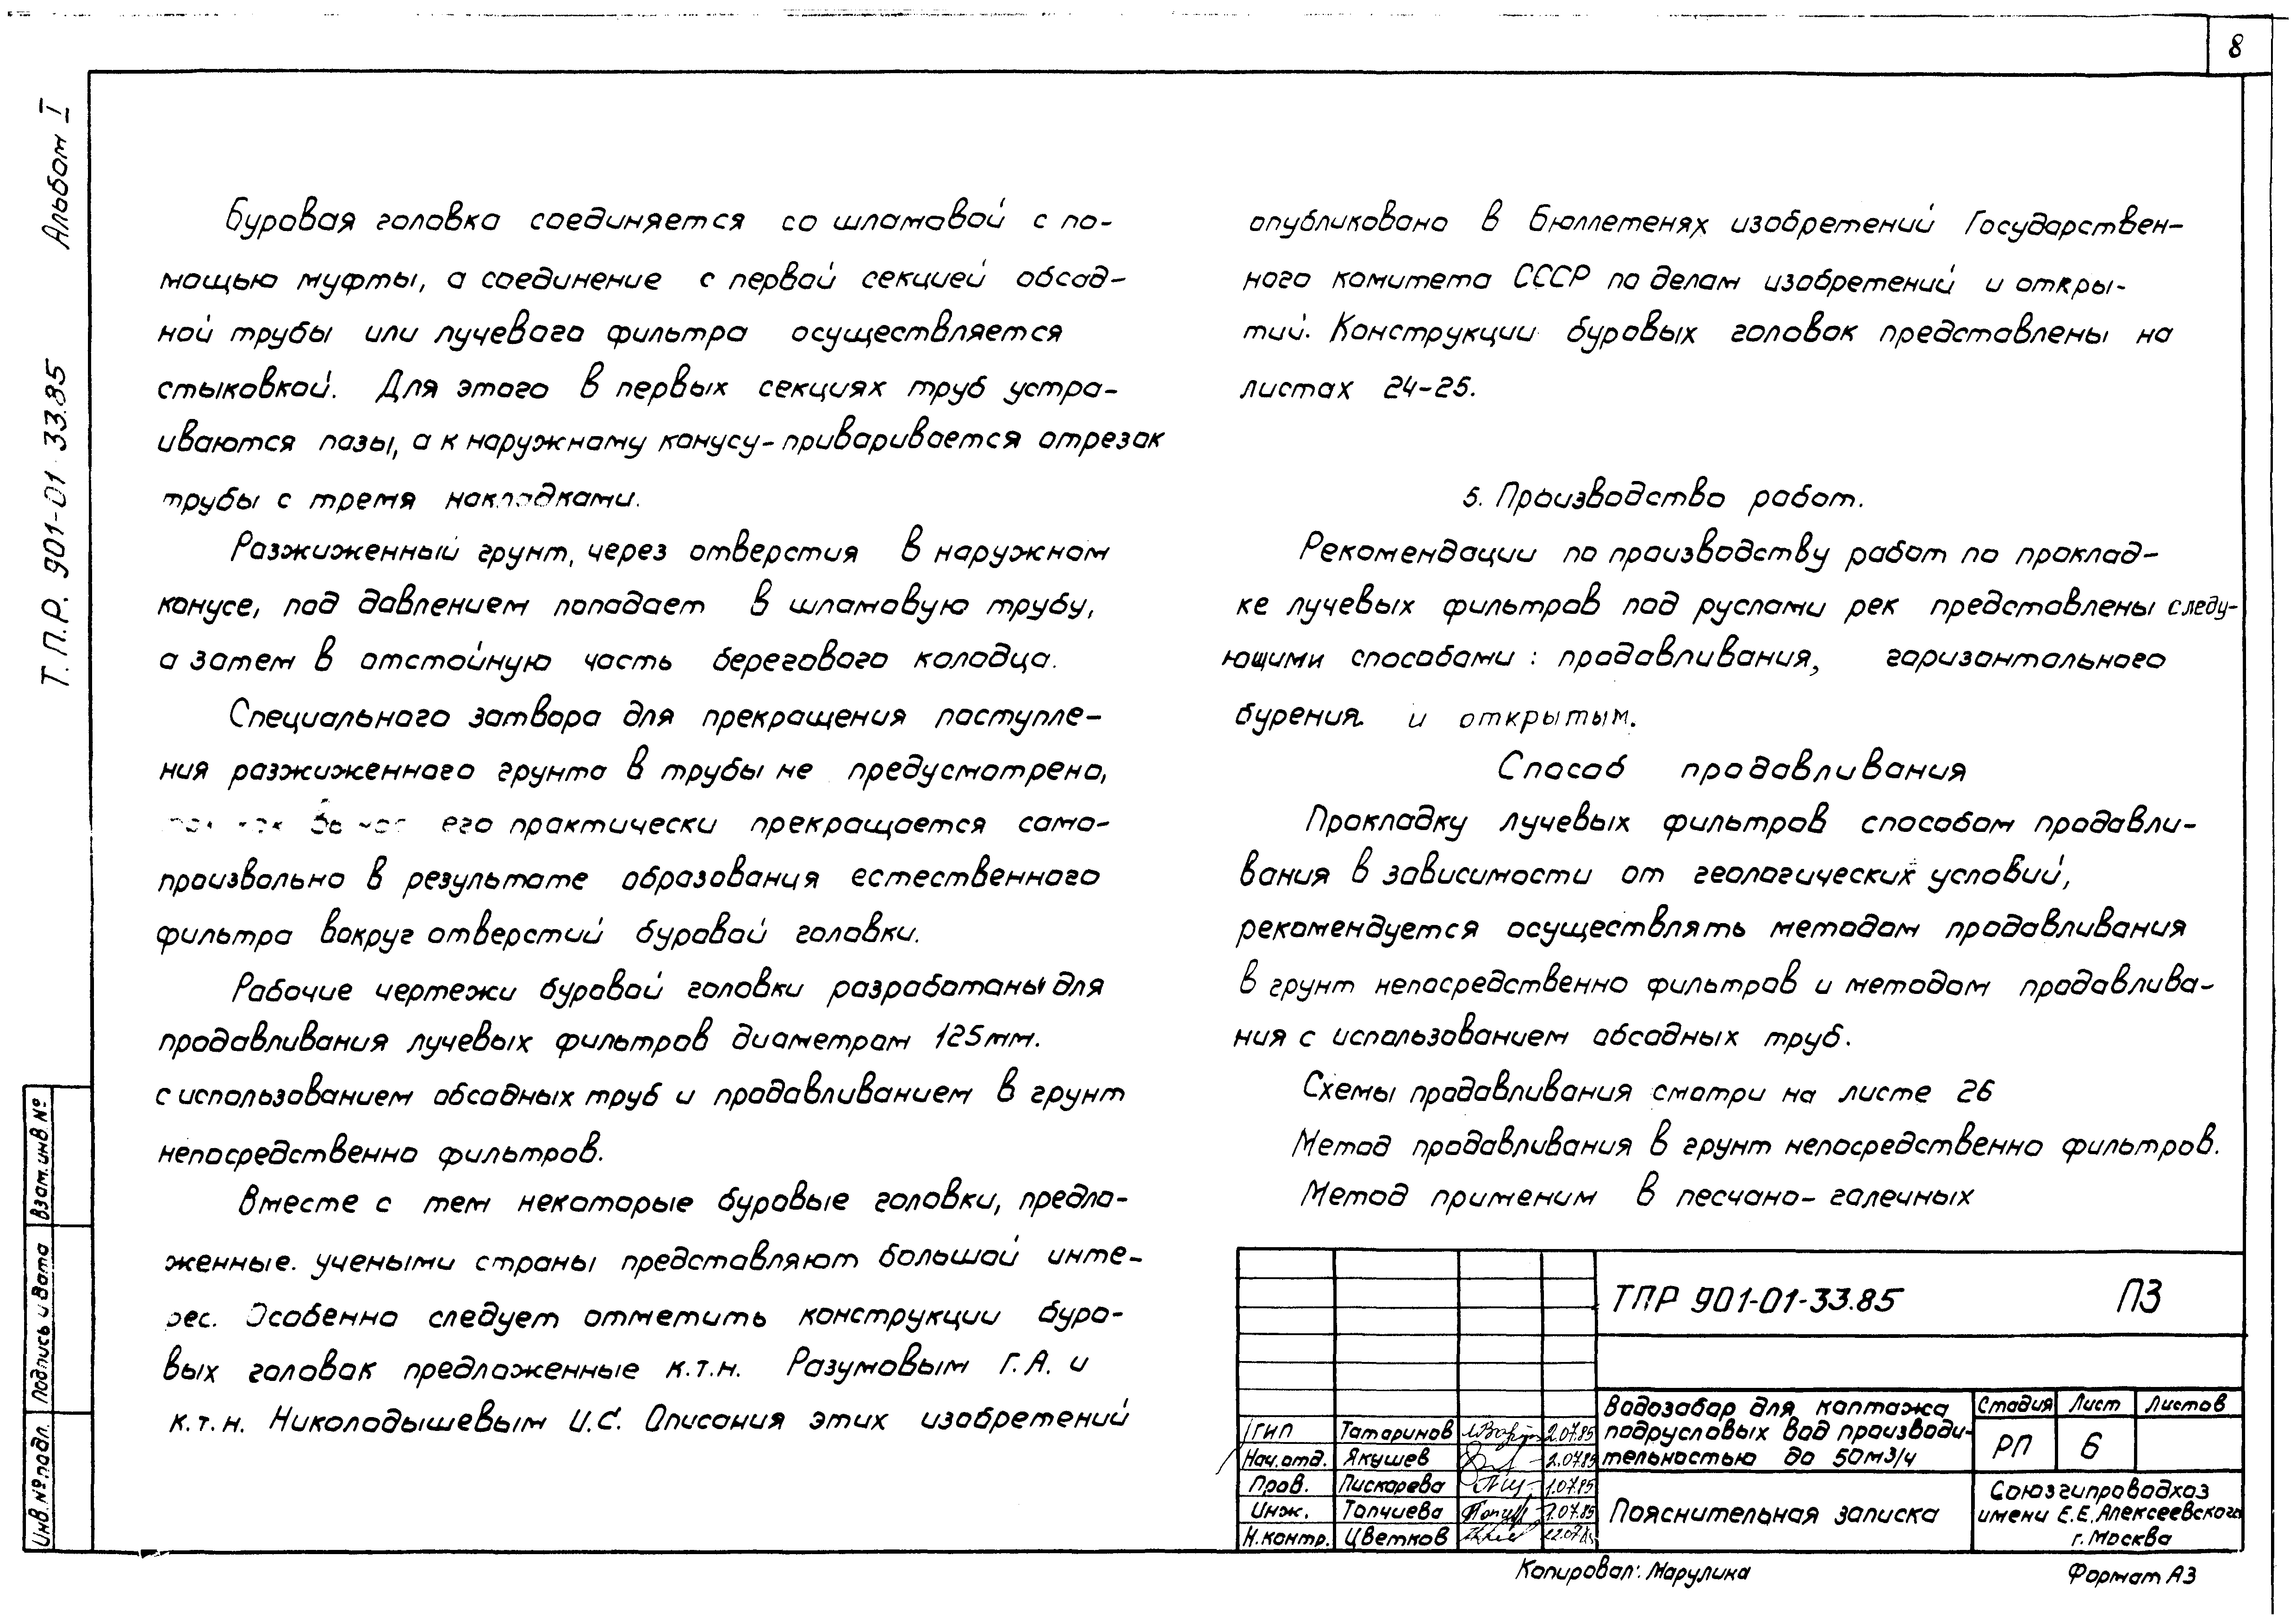 8
Альбом I
Т.П.Р. 901-01-33.85
Буровая головка соединяется со шламовой с по-
мощью муфты, а соединение с первой секцией обсад-
ной трубы или лучевого фильтра осуществляется
стыковкой. Для этого в первых секциях труб устра-
иваются пазы, а к наружному конусу-приваривается отрезок
трубы с тремя накладками.
Разжиженный грунт, через отверстия в наружном
конусе, под давлением попадает в шламовую трубу,
а затем в отстойную часть берегового колодца.
Специального затвора для прекращения поступле-
ния разжиженного грунта в трубы не предусмотрено,
его практически прекращается само-
произвольно в результате образования естественного
фильтра вокруг отверстий буровой головки.
Рабочие чертежи буровой головки разработаны для
продавливания лучевых фильтров диаметром 125мм.
с использованием обсадных труб и продавливанием в грунт
непосредственно фильтров.
Вместе с тем некоторые буровые головки, предло-
женные. учеными страны представляют большой инте-
рес. Особенно следует отметить конструкции буро-
вых головок предложенные к.т.н. Разумовым Г.А. и
к.т.н. Николадышевым И.С. Описания этих изобретений
опубликовано в Бюллетенях изобретений Государствен-
ного комитета СССР по делам изобретений и откры-
тий. Конструкции буровых головок представлены на
листах 24-25.
5. Производство работ.
Рекомендации по производству работ по проклад-
ке лучевых фильтров под руслами рек представлены следу-
ющими способами: продавливания, горизонтального
бурения и открытым.
Способ продавливания
Прокладку лучевых фильтров способом продавли-
вания в зависимости от геологических условий,
рекомендуется осуществлять методом продавливания
в грунт непосредственно фильтров и методом продавлива-
ния с использованием обсадных труб.
Схемы продавливания смотри на листе 26
Метод продавливания в грунт непосредственно фильтров.
Метод применим в песчано-галечных
ТПР 901-01-33.85 ПЗ
Водозабор для каптажа
подрусловых вод производи-
тельностью до 50м3/ч
Стадия Лист Листов
РП 6
ГИП Татаринов 2.07.85
Нач.отд. Якушев 2.07.85
Пров. Пискарева 1.07.85
Инж. Топчиева 1.07.85
Н.контр. Цветков
Пояснительная записка
Союзгипроводхоз
имени Е.Е.Алексеевского
г.Москва
Инв.№подл. Подпись и дата Взам.инв.№
Копировал: Марулина
Формат А3